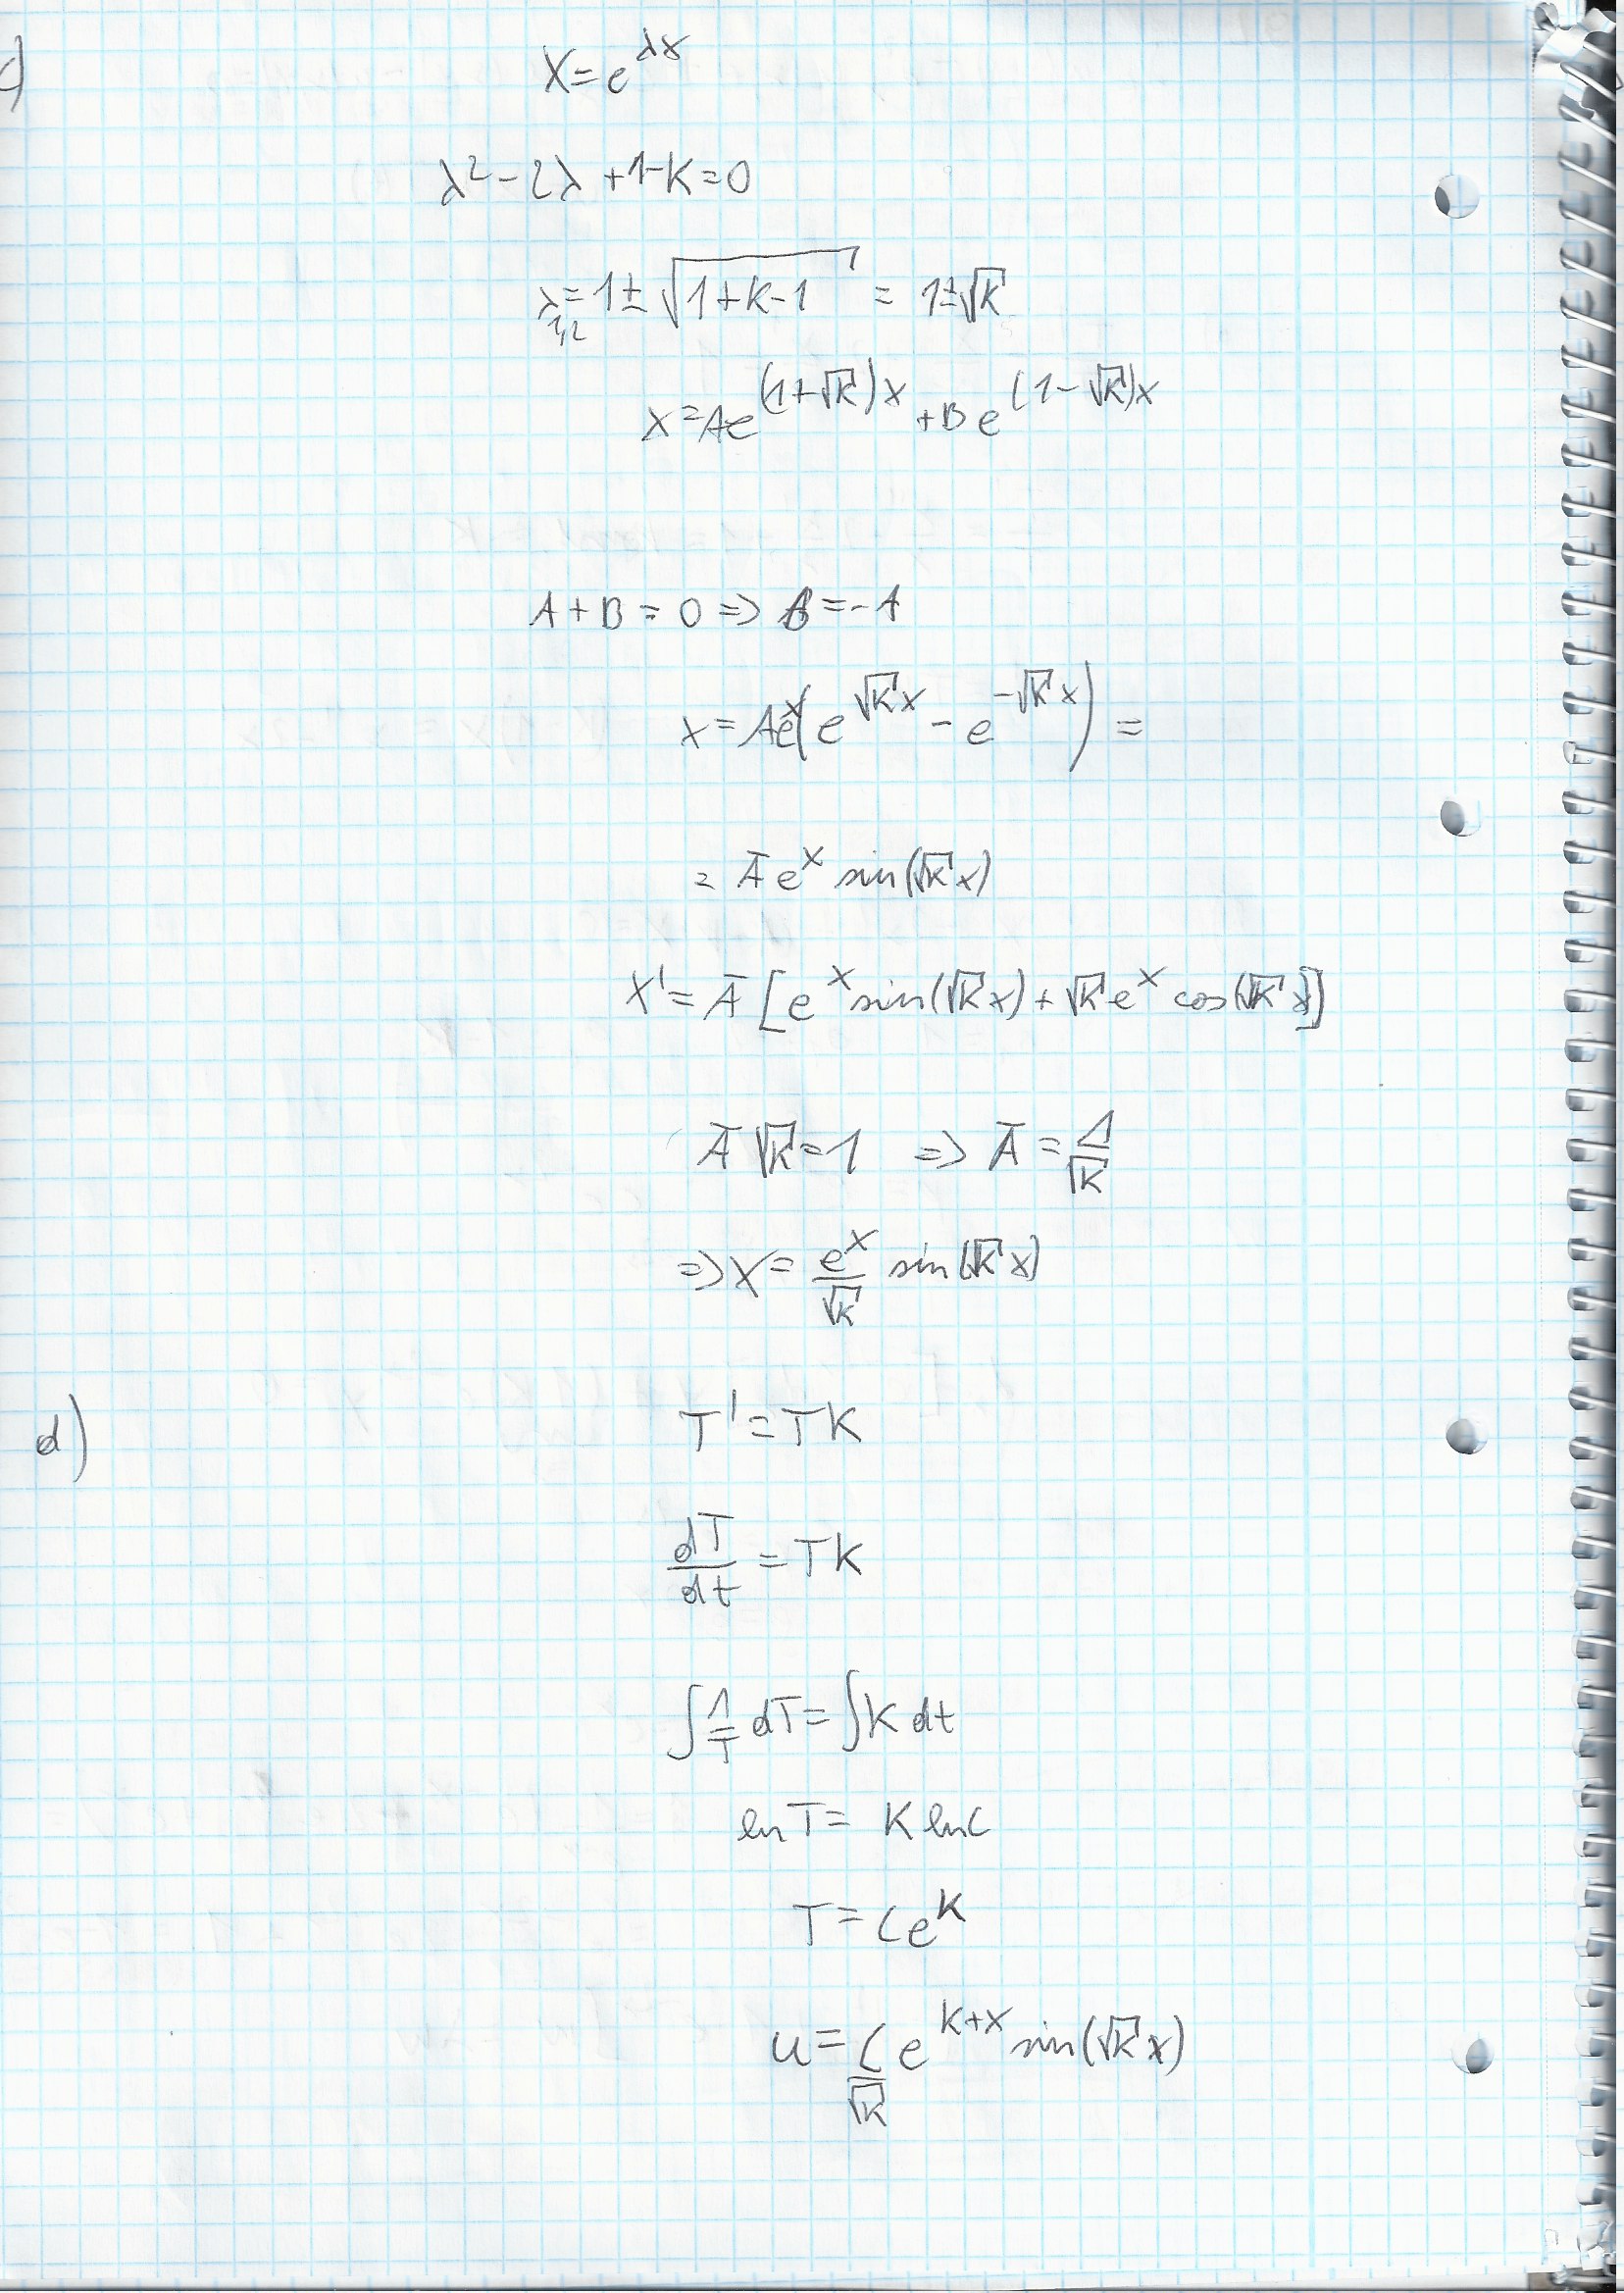 c) X = e^{λx}
λ² - 2λ + 1 - K = 0
λ_{1,2} = 1 ± √(1+K-1) = 1 ± √K
X = Ae^{(1+√K)x} + Be^{(1-√K)x}
A + B = 0 => B = -A
X = Ae^x(e^{√K x} - e^{-√K x}) =
= Ā e^x sin(√K x)
X' = Ā [e^x sin(√K x) + √K e^x cos(√K x)]
Ā √K = 1 => Ā = 1/√K
=> X = e^x/√K sin(√K x)
d) T' = TK
dT/dt = TK
∫ 1/T dT = ∫ K dt
ln T = K ln C
T = C e^K
u = C/√K e^{K+x} sin(√K x)